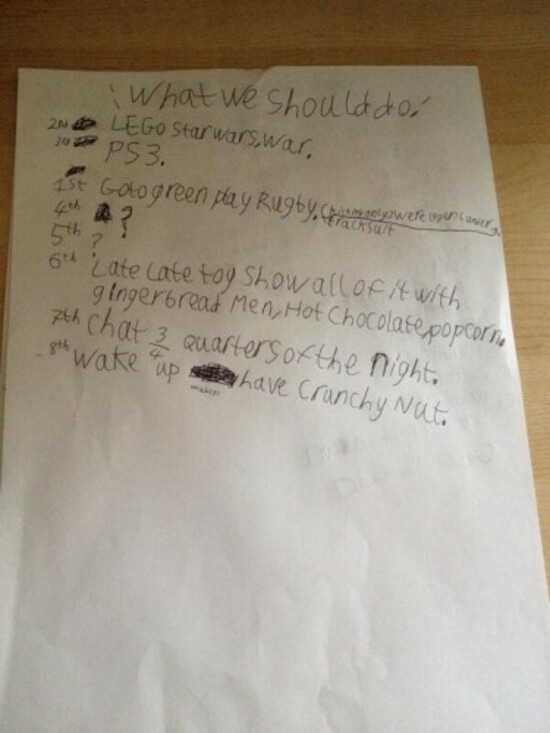 What we should do!
2nd LEGO star wars, war.
3rd PS3.
1st Go to green play Rugby.
tracksuit
4th ?
5th ?
6th Late Late toy Show all of it with
gingerbread Men, Hot Chocolate, popcorn.
7th Chat 3/4 quarters of the night.
8th wake up have Crunchy Nut.